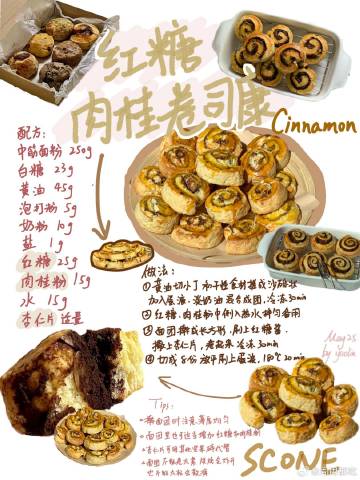 红糖
肉桂卷司康
Cinnamon
配方：
中筋面粉 250g
白糖 23g
黄油 45g
泡打粉 5g
奶粉 10g
盐 1g
红糖 25g
肉桂粉 15g
水 15g
杏仁片 适量
做法：
①黄油切小丁和干性食材搓成沙砾状
加入蛋液、淡奶油混合成团，冷冻30min
②红糖、肉桂粉中倒入热水拌匀备用
③面团擀成长方形，刷上红糖酱
撒上杏仁片，卷起来冷冻30min
④切成8份放平刷上蛋液，180℃20min
May 25
by
Tips：
擀面团时注意薄厚均匀
面团里也可适当增加红糖和肉桂粉
杏仁片可用其他坚果碎代替
SCONE